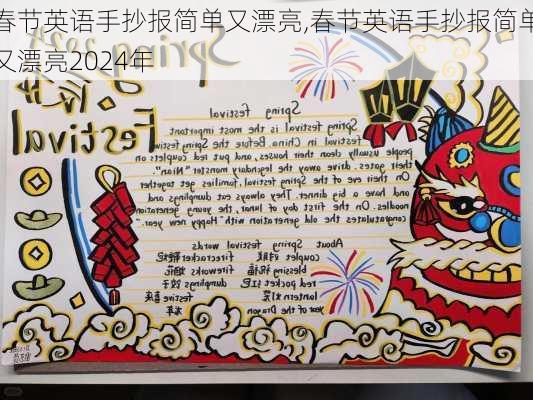 春节英语手抄报简单又漂亮,春节英语手抄报简单
又漂亮2024年
Spring
Festival
Spring festival
Spring festival is the most important
festival in China. Before the Spring festival
people usually clean their houses, and put red couplets on
their gates. drive away the legendary monster "Nian".
On their eve of the Spring festival, families get together
and have a big dinner. They always eat dumplings and
noodles. On the first day of lunar, the young generation
congratulates the old generation with "Happy new year."
About Spring festival words
couplet 对联 firecracker 鞭炮
blessing 祝福 fireworks 烟花
red pocket 红包 dumplings 饺子
lantern 灯笼 festive 喜庆
year of the Dragon 龙年